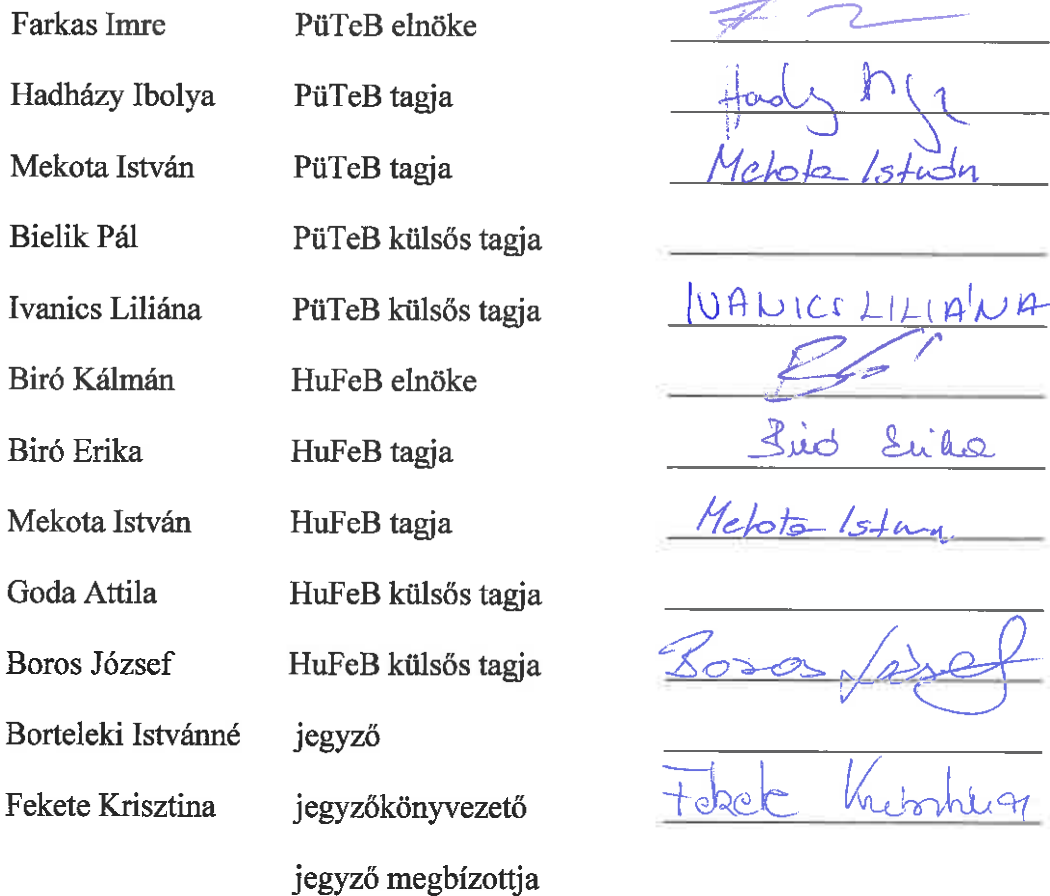 Farkas Imre PüTeB elnöke
Hadházy Ibolya PüTeB tagja
Mekota István PüTeB tagja Mekota István
Bielik Pál PüTeB külsős tagja
Ivanics Liliána PüTeB külsős tagja IVANICS LILIÁNA
Biró Kálmán HuFeB elnöke
Biró Erika HuFeB tagja Biró Erika
Mekota István HuFeB tagja Mekota István
Goda Attila HuFeB külsős tagja
Boros József HuFeB külsős tagja Boros József
Borteleki Istvánné jegyző
Fekete Krisztina jegyzőkönyvezető Fekete Krisztina
jegyző megbízottja